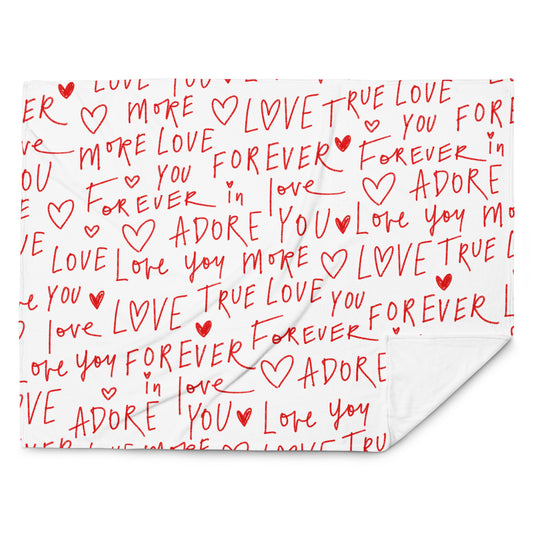 LOVE YOU LOVE YOU
ER MORE LOVE TRUE LOVE
ve MORE LOVE FOREVER YOU FOREVER
OU YOU FOREVER in love FOREVER in
FOREVER in love ADORE
VE ADORE YOU Love you MO
LOVE Love you MORE LOVE TRUE LO
e YOU LOVE TRUE LOVE YOU FOREVER
love FOREVER FOREVER
ove you in love ADORE
OVE ADORE YOU Love you
VER LOVE MORE LOVE TRUE